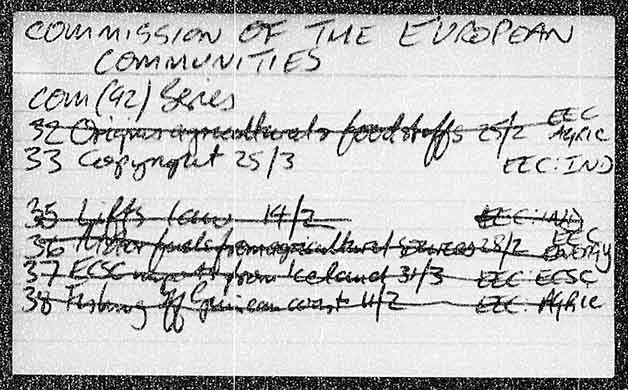 COMMISSION OF THE EUROPEAN
COMMUNITIES
COM(92) Series
32 Origin agricultural & foodstuffs 25/2 EEC AGRIC
33 Copyright 25/3 EEC: IND
35 Lifts law 14/2 EEC: IND
36 Motor fuels from agricultural sources 28/2 EEC ENERGY
37 ECSC from Iceland 31/3 EEC: ECSC
38 Fishing off Guinean coast 11/2 EEC: AGRIC